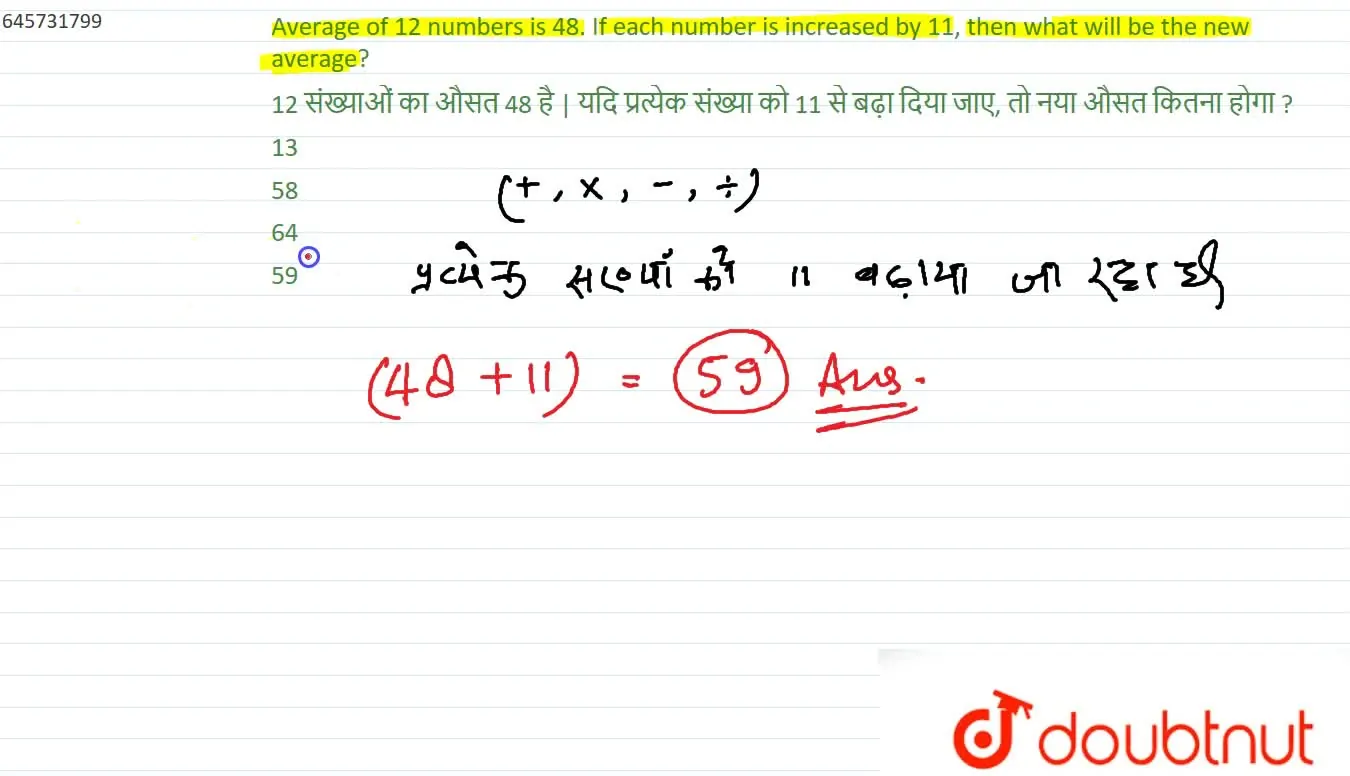 645731799
Average of 12 numbers is 48. If each number is increased by 11, then what will be the new
average?
12 संख्याओं का औसत 48 है | यदि प्रत्येक संख्या को 11 से बढ़ा दिया जाए, तो नया औसत कितना होगा ?
13
58
64
59
(+, ×, -, ÷)
प्रत्येक 11 बढ़ाया जा रहा है
(48 + 11) = 59 Ans.
doubtnut